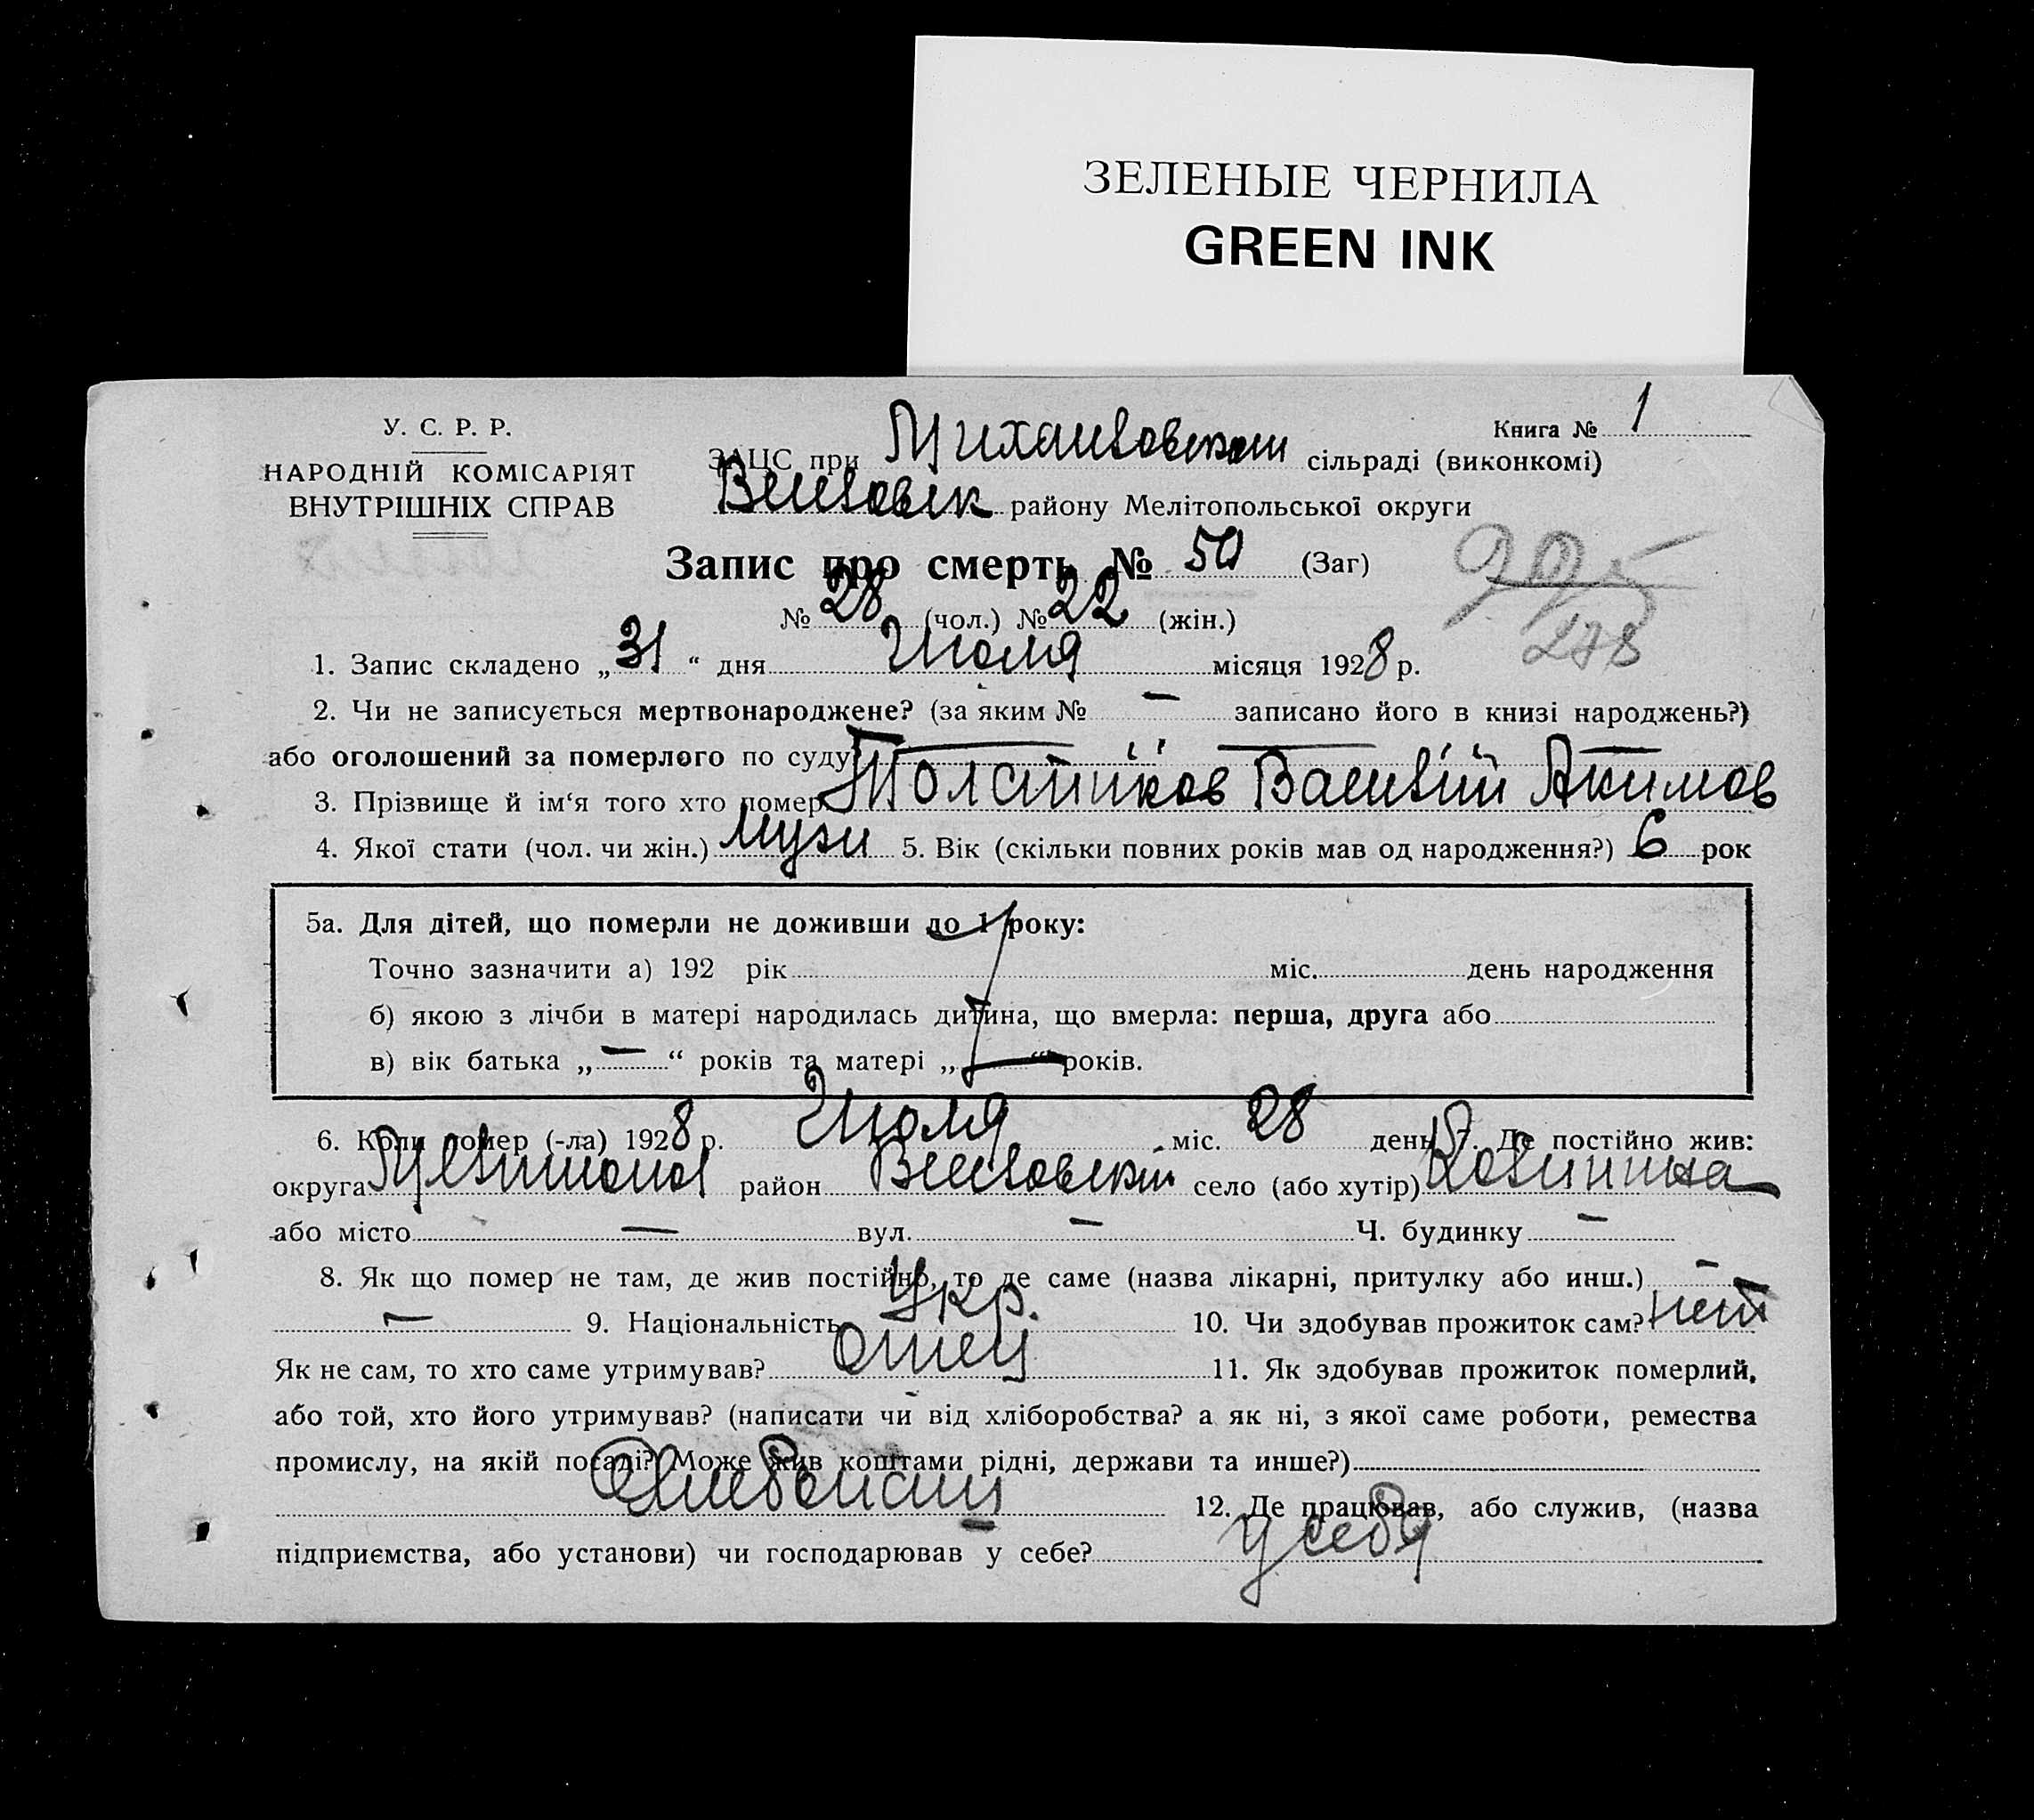 ЗЕЛЕНЫЕ ЧЕРНИЛА
GREEN INK
У. С. Р. Р.
НАРОДНІЙ КОМІСАРІЯТ
ВНУТРІШНІХ СПРАВ
Книга № 1
ЗАЦС при сільраді (виконкомі)
району Мелітопольської округи
Запис про смерть № 50 (Заг)
№ 28 (чол.) № 22 (жін.)
278
1. Запис складено „31“ дня Июля місяця 1928 р.
2. Чи не записується мертвонароджене? (за яким № — записано його в книзі народжень?)
або оголошений за померлого по суду?
3. Прізвище й ім‘я того хто помер Толстіков Василій Акимов
4. Якої стати (чол. чи жін.) мужи 5. Вік (скільки повних років мав од народження?) 6 рок
5а. Для дітей, що померли не доживши до 1 року:
Точно зазначити а) 192 рік міс. день народження
б) якою з лічби в матері народилась дитина, що вмерла: перша, друга або
в) вік батька „—“ років та матері „—“ років.
6. Коли помер (-ла) 1928 р. Июля міс. 28 день 7. Де постійно жив:
округа район село (або хутір)
або місто — вул. — Ч. будинку —
8. Як що помер не там, де жив постійно, то де саме (назва лікарні, притулку або инш.) —
— 9. Національність Укр. 10. Чи здобував прожиток сам? нет
Як не сам, то хто саме утримував? отец 11. Як здобував прожиток померлий,
або той, хто його утримував? (написати чи від хліборобства? а як ні, з якої саме роботи, ремества
промислу, на якій посаді? Може жив коштами рідні, держави та инше?)
12. Де працював, або служив, (назва
підприємства, або установи) чи господарював у себе? у себя